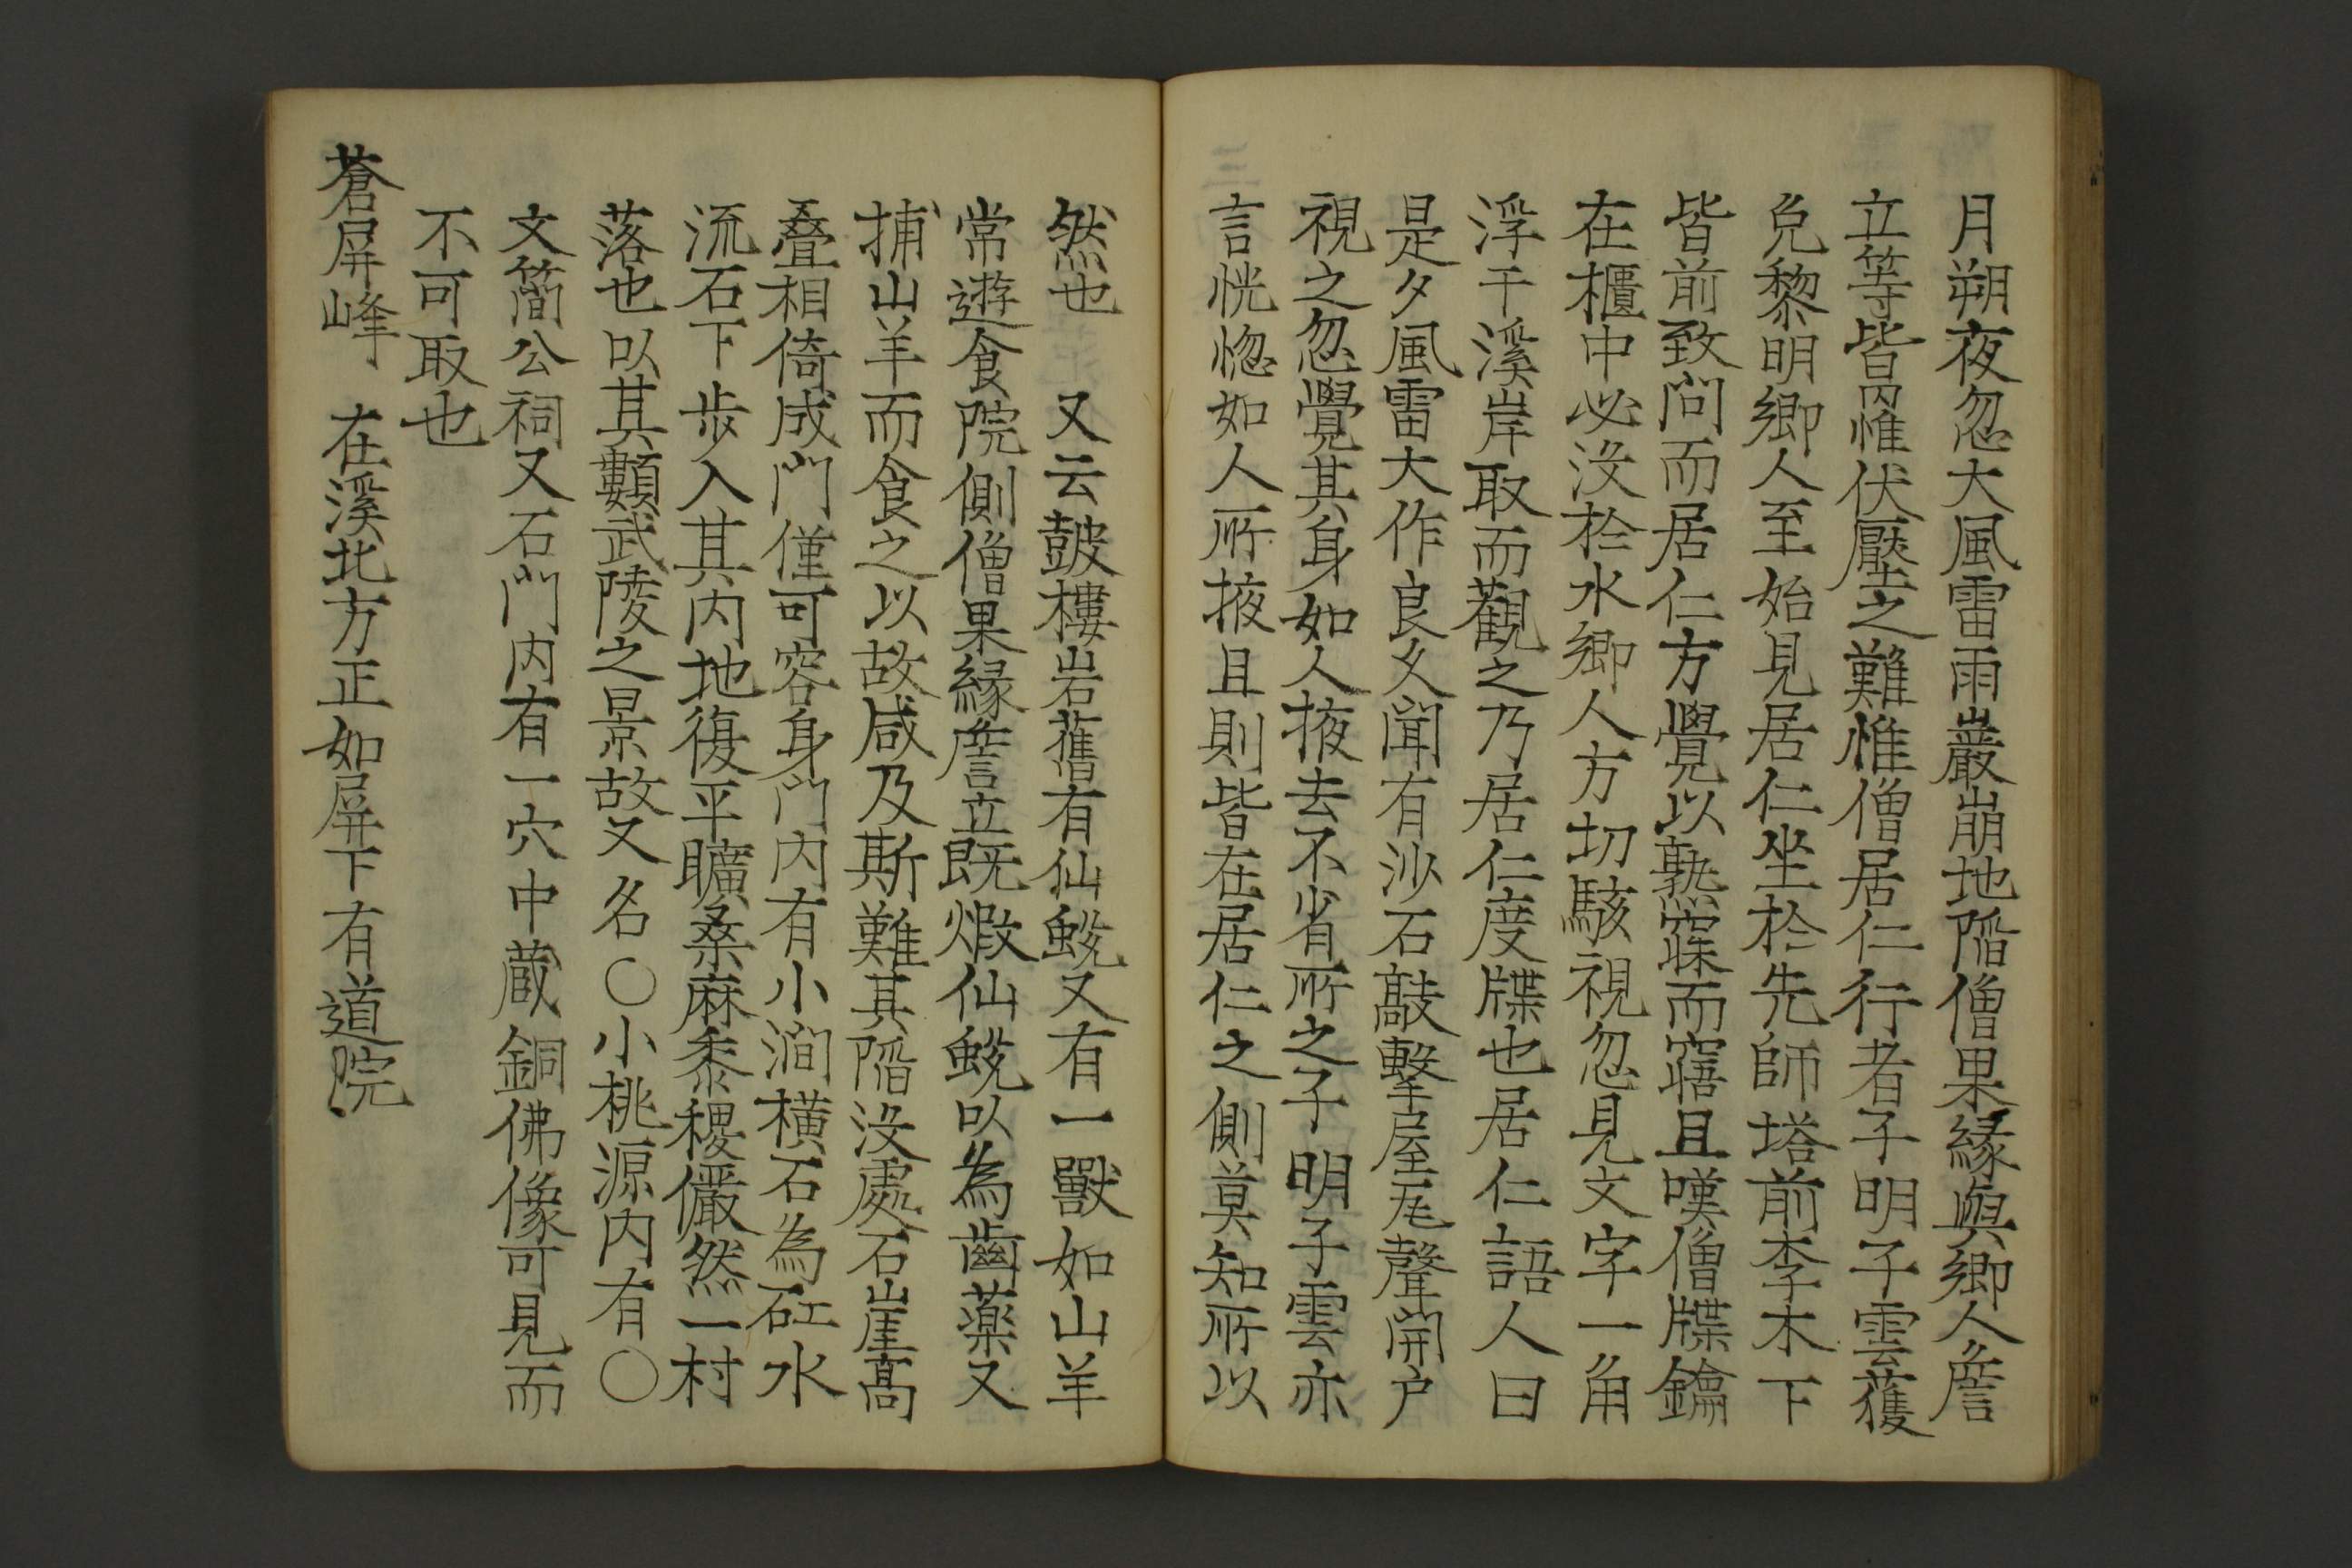 月朔夜忽大風雷雨巖崩地陷僧果緣與鄉人詹
立等皆罹伏壓之難惟僧居仁行者子明子雲獲
免黎明鄉人至始見居仁坐於先師塔前李木下
皆前致問而居仁方覺以熟寐而寤且嘆僧牒鑰
在櫃中必沒於水鄉人方切駭視忽見文字一角
浮于溪岸取而觀之乃居仁度牒也居仁語人曰
是夕風雷大作良久聞有沙石敲擊屋瓦聲開户
視之忽覺其身如人掖去不省所之子明子雲亦
言恍惚如人所掖且則皆在居仁之側莫知所以
然也 又云皷樓岩舊有仙蛻又有一獸如山羊
常遊食院側僧果緣詹立既煅仙蛻以為齒藥又
捕山羊而食之以故咸及斯難其陷沒處石崖高
叠相倚成門僅可容身門内有小澗橫石為矼水
流石下步入其内地復平曠桑麻黍稷儼然一村
落也以其類武陵之景故又名〇小桃源内有〇
文簡公祠又石門内有一穴中蔵銅佛像可見而
不可取也
蒼屏峰 在溪北方正如屏下有道院